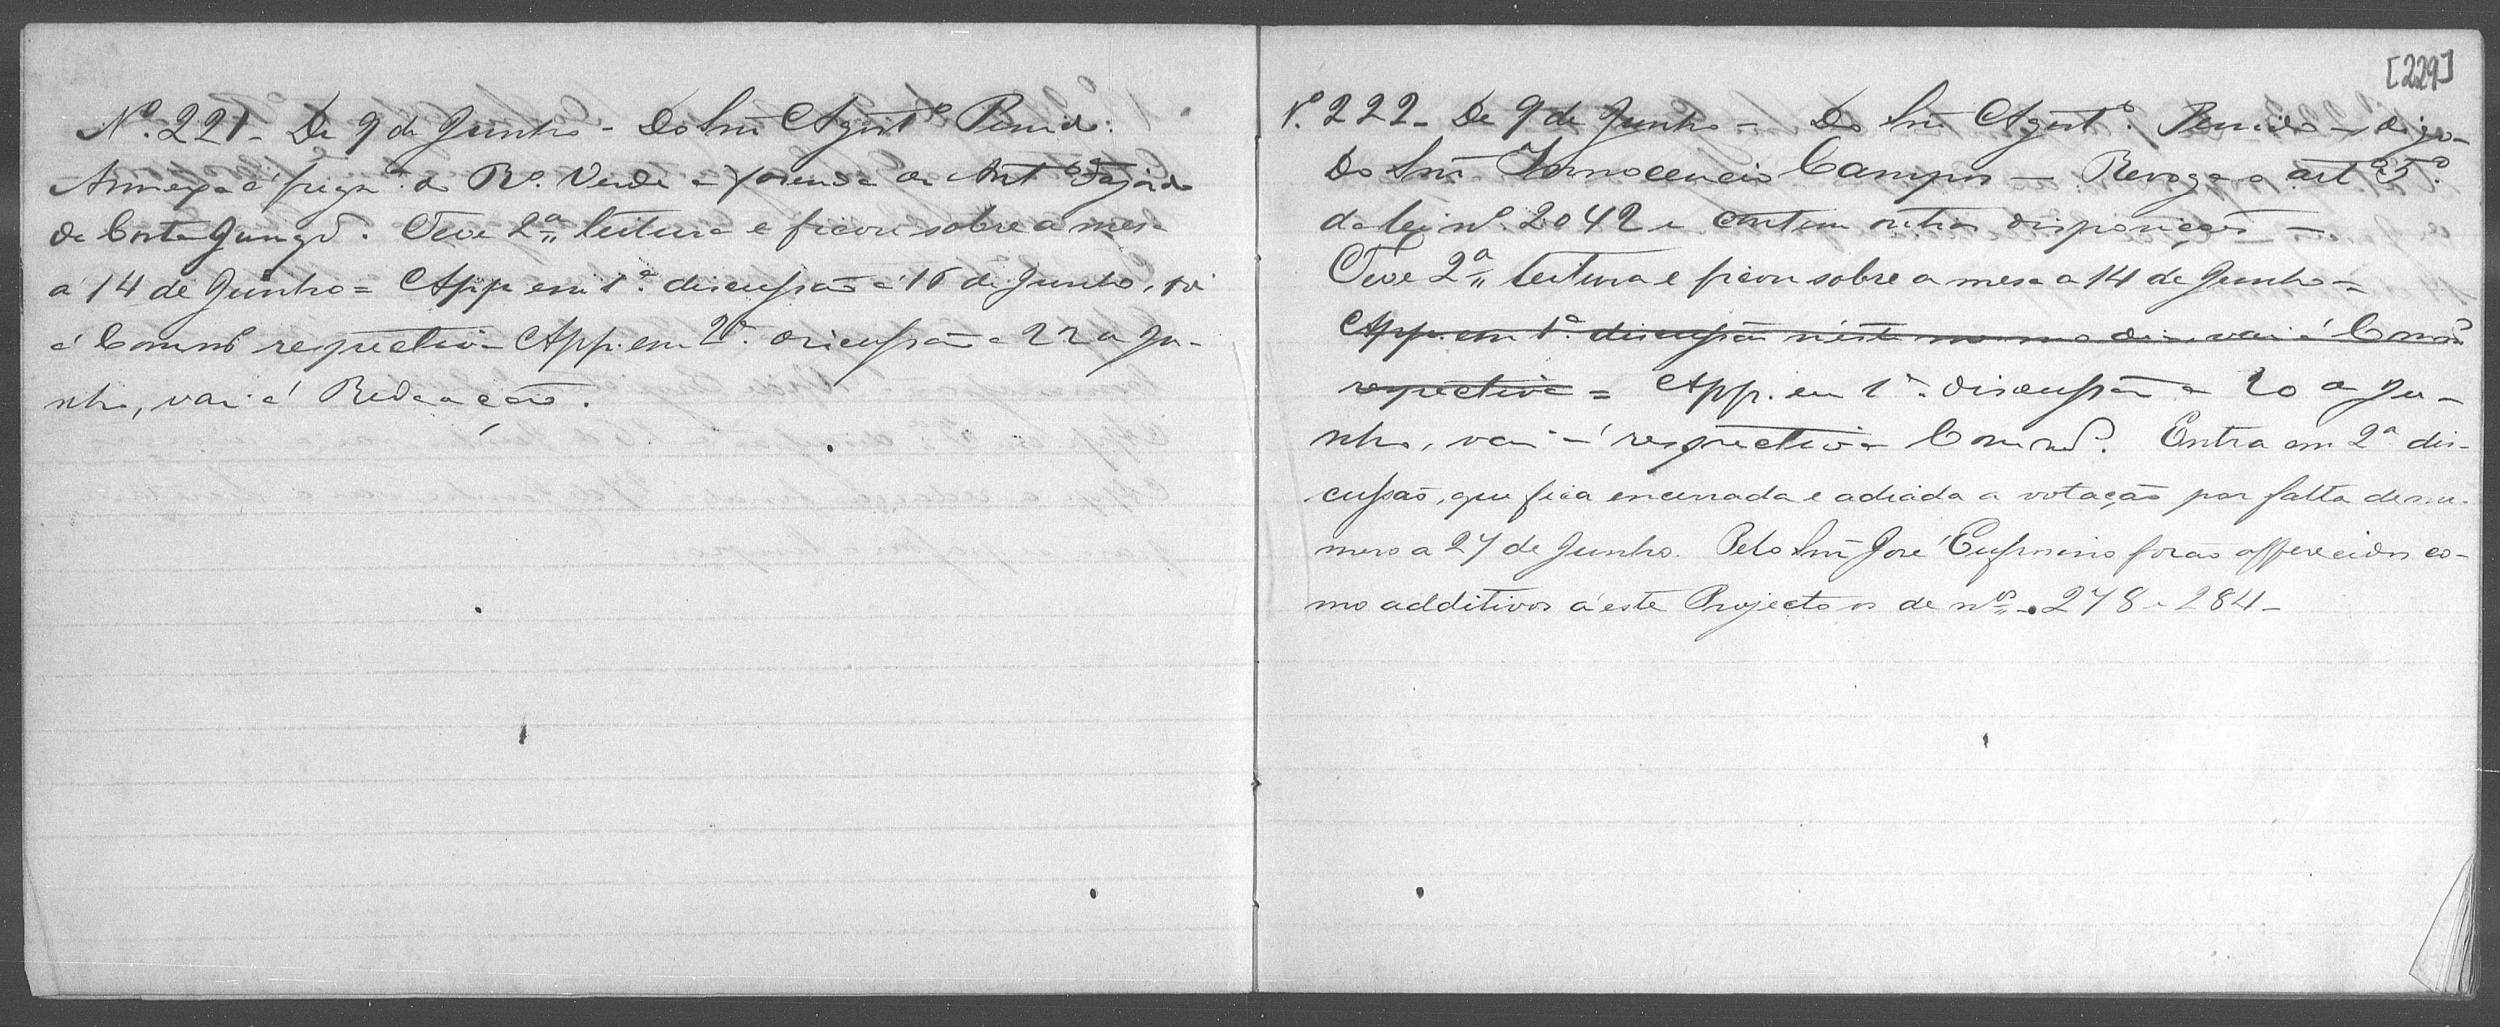 Nº. 221 - De 9 de Junho - Do Snr Agostº Penido:
Annexa á fregª. do Rº. Verde a fazenda de Antº Fajardo
da Costa Jungd. Teve 2ª leitura e ficou sobre a mesa
a 14 de Junho = App em 1ª. discussão a 16 de Junho, vai
á Commº respectiva App. em 2ª. discussão a 22 de Ju-
nho, vai á Redacção.
[229]
Nº. 222 - De 9 de Junho - Do Snr Agostº. Penido - digo -
Do Snr Innocencio Campos - Revoga o artº 5º.
da lei nº. 2042 e contem outras disposições -
Teve 2ª leitura e ficou sobre a mesa a 14 de Junho =
App. em 1ª. discussão n'este mesmo dia, vai á Commº
respectiva = App. em 1ª. discussão a 20 de Ju-
nho, vai á respectiva Commº. Entra em 2ª dis-
cussão, que fica encerrada e adiada a votação por falta de nu-
mero a 27 de Junho. Pelo Snr José Eufrosino forão offerecidos co-
mo additivos a este Projecto os de nºs - 278 e 284 -